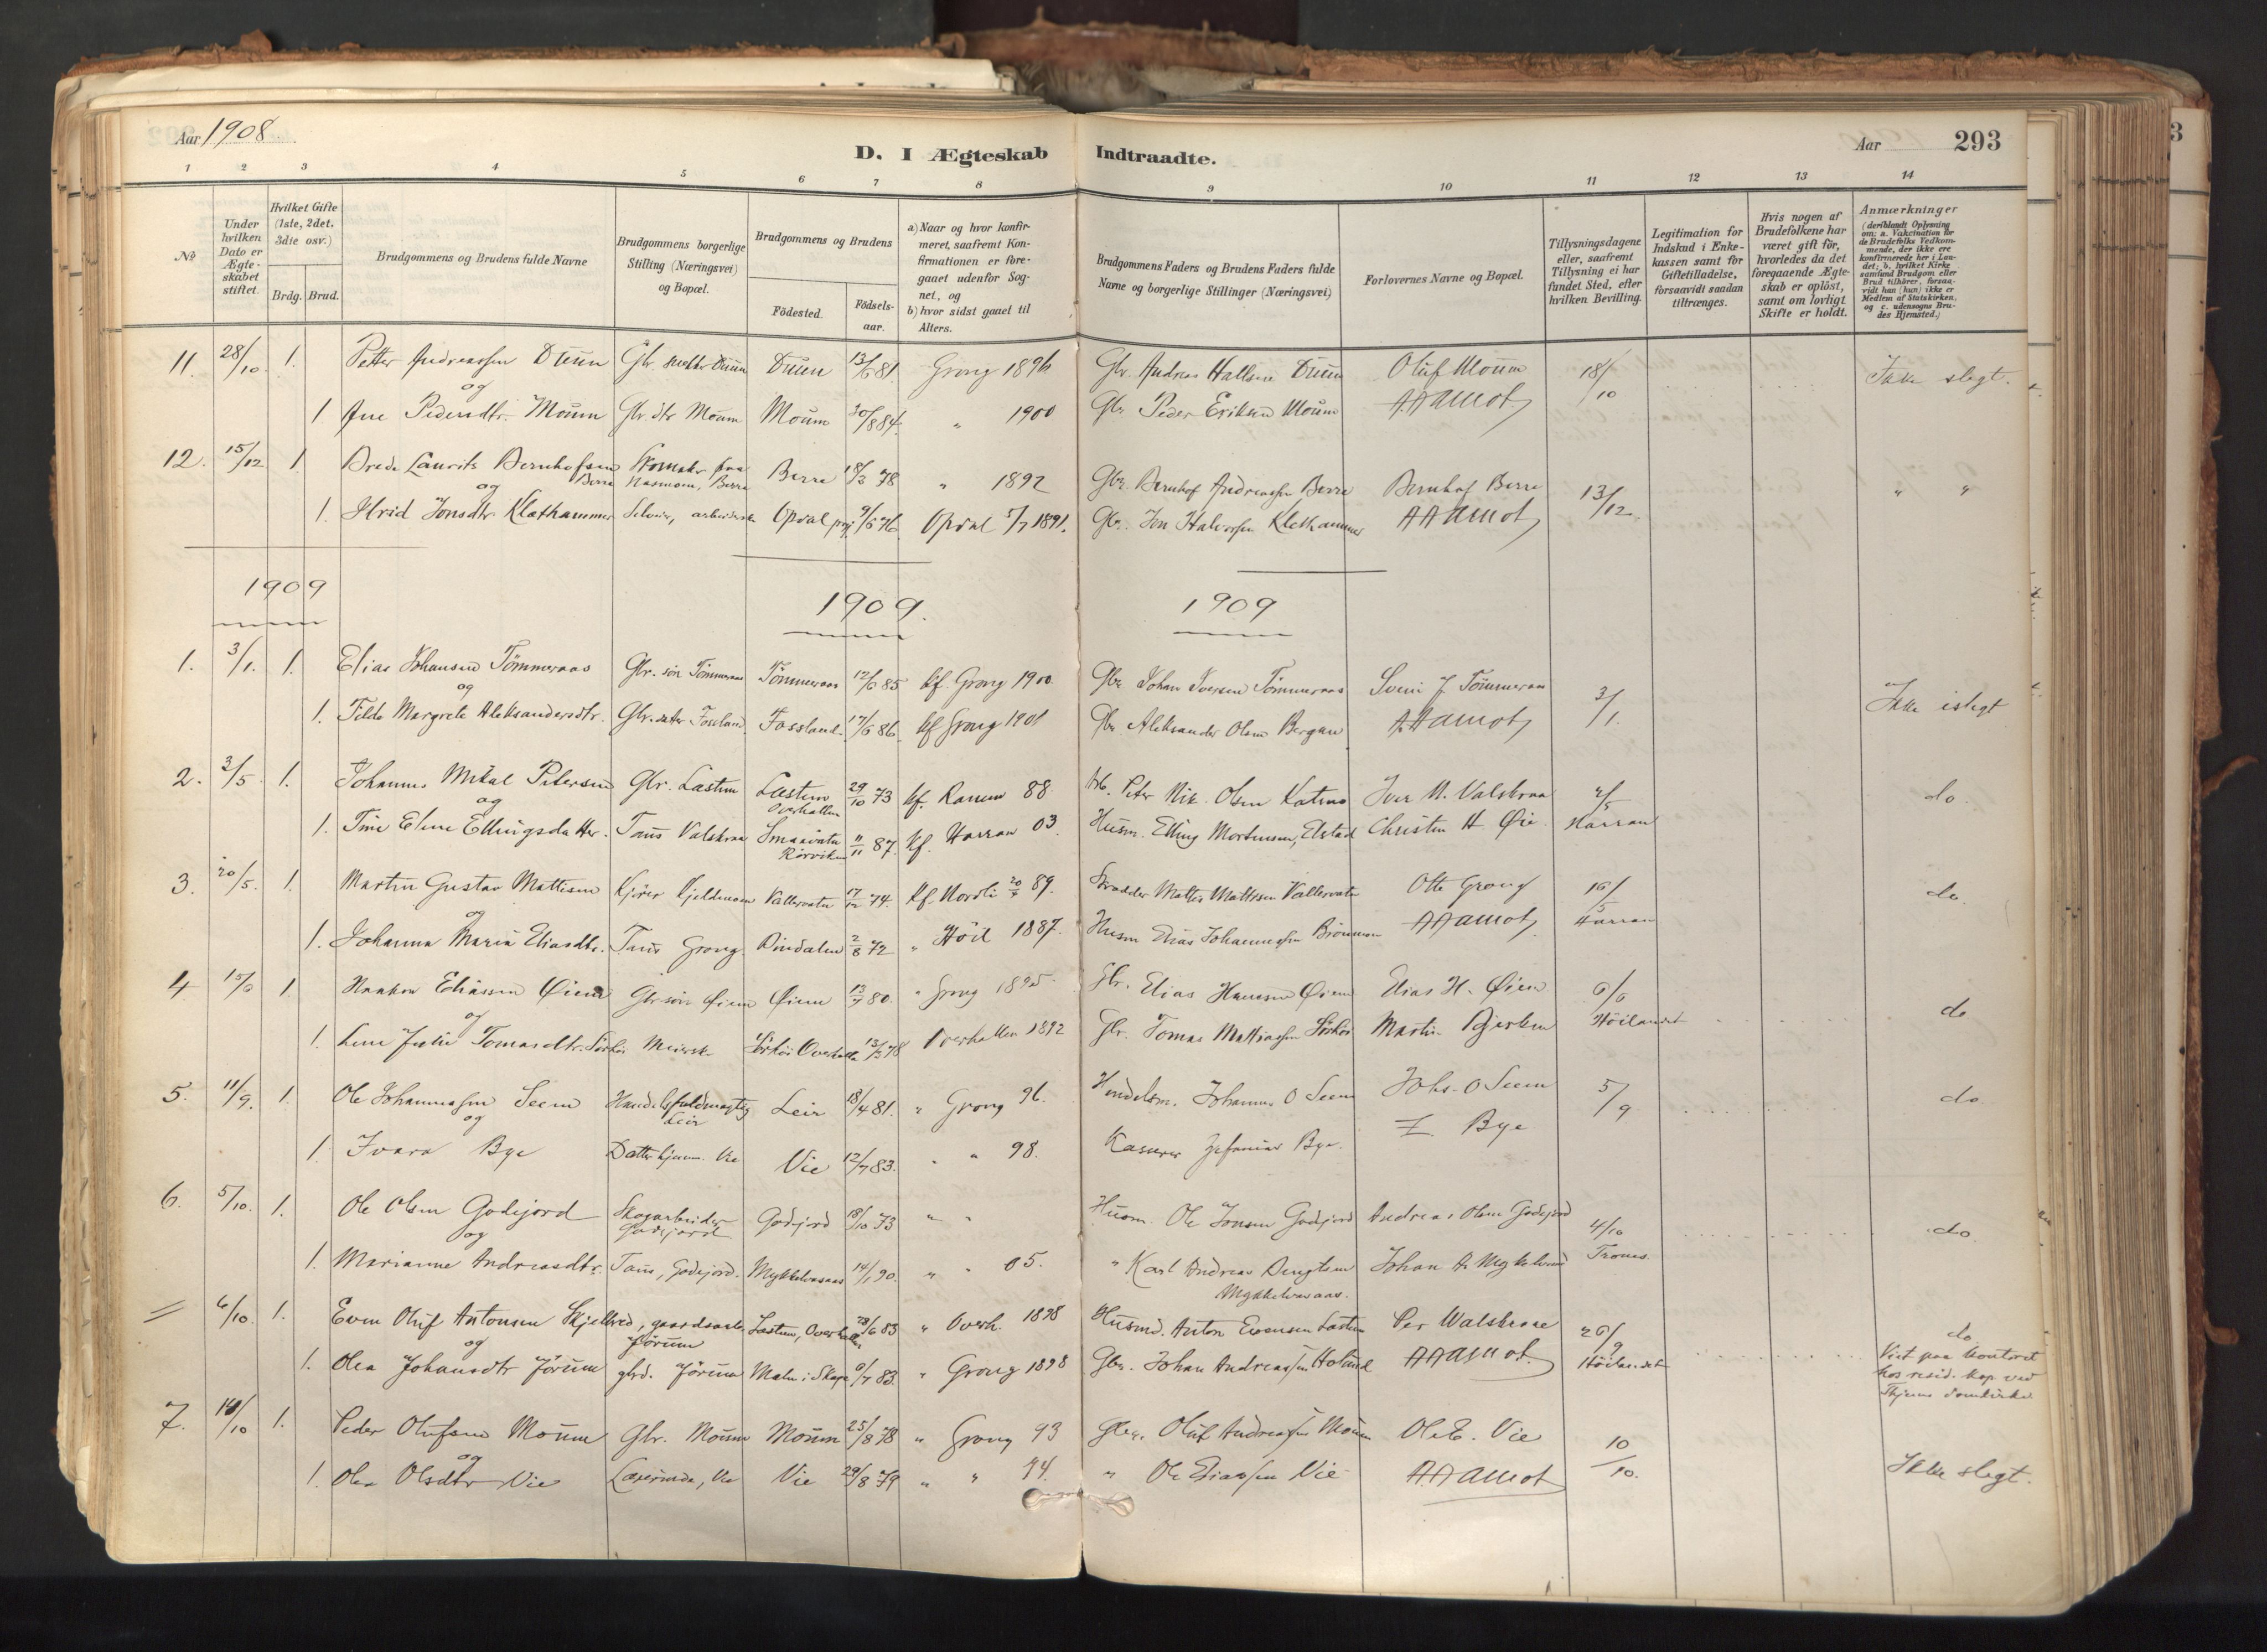 Aar 1908
D. I Ægteskab Indtraadte.
Aar 293
1 2 3 4 5 6 7 8 9 10 11 12 13 14
No
Under hvilken Dato er Ægteskabet stiftet.
Hvilket Gifte (1ste, 2det, 3die osv.)
Brdg. Brud.
Brudgommens og Brudens fulde Navne
Brudgommens borgerlige Stilling (Næringsvei) og Bopæl.
Brudgommens og Brudens
Födested. Födsels-aar.
a) Naar og hvor konfirmeret, saafremt Konfirmationen er foregaaet udenfor Sognet, og
b) hvor sidst gaaet til Alters.
Brudgommens Faders og Brudens Faders fulde Navne og borgerlige Stillinger (Næringsvei)
Forlovernes Navne og Bopæl.
Tillysningsdagene eller, saafremt Tillysning ei har fundet Sted, efter hvilken Bevilling.
Legitimation for Indskud i Enkekassen samt for Giftetilladelse, forsaavidt saadan tiltrænges.
Hvis nogen af Brudefolkene har været gift för, hvorledes da det foregaaende Ægteskab er oplöst, samt om lovligt Skifte er holdt.
Anmærkninger (deriblandt Oplysning om: a. Vakcination for de Brudefolks Vedkommende, der ikke ere konfirmerede her i Landet; b. hvilket Kirkesamfund Brudgom eller Brud tilhörer, forsaavidt han (hun) ikke er Medlem af Statskirken, og c. udensogns Brudes Hjemsted.)
11. 28/10 1. Petter Andreassen Duun Duun 13/6 81. Grong 1896 Gbr. Andreas Hallsen Duun Oluf Moum 18/10 Ikke slegt.
og
1 Ane Pedersdtr. Moum Gbr. dtr Moum Moum 30/8 84. " 1900 Gbr. Peder Eriksen Moum A. Aamot
12. 15/12 1. Brede Laurits Bernhofsen Berre Skomaker Berre 78 " 1892 Gbr. Bernhof Andreassen Berre Bernhof Berre 13/12 " "
og
1. Jonsdtr. Klethammer Opdal 9/6 76. Opdal 5/7 1891. Gbr. Jon Halvorsen Klethammer A Aamot
1909 1909. 1909
1. 3/1. 1. Elias Johansen Tömmeraas Gbr. sön Tömmeraas Tömmeraas 12/6 85 kf. Grong 1900. Gbr Johan Iversen Tömmeraas J. Tömmeraas 3/1. Ikke islegt
og
1. Margrete Aleksandersdtr. Gbr. datter Fossland Fossland 17/6 86 kf Grong 1901 Gbr Aleksander Olsen Bergan A. Aamot
2. 2/5 1. Johannes Mikal Petersen Gbr. Lastun Lastun Overhallen 29/10 73 kf. Ranem 88. Peter Nik. Olsen Iver M. Valskraa 2/5 Harran do.
og
1. Tine Eline Ellingsdatter. Taus Valskraa 11/11 87. kf. Harran 03. Husm. Elling Mortensen, Elstad Christen H. Øie
3. 20/5. 1. Martin Gustav Mattisen Kjörer Kjeldmoen Vallervatn 17/12 74. kf. Nordli 89. Mattis Mattisen Vallervatn Otto Grong 16/5 Harran do.
og
1. Johanna Maria Eliasdtr. Taus Grong 2/8 72 " Höil 1887. Husm Elias Johannessen A Aamot
4 15/6 1 Haakon Eliassen Øiem Gbr sön Øiem Øiem 13/7 80. " Grong 1895. Gbr. Elias Hansen Øiem Elias H. Øiem 6/6 Höilandet do
og
1. Julie Tomasdtr. Meierske Overhalla 78 Overhallen 1892 Gbr. Tomas Mattiassen Martin
5. 11/9. 1. Ole Johannessen Seem Handelsfuldmegtig Leir Leir 18/4 81. " Grong 96. Handelsm. Johannes O Seem Johs. O Seem 5/9 do
og
1. Ivara Bye Datter hjem. Vie Vie 12/7 83. " " 98. Kasserer Zefanias Bye. Z. Bye
6. 5/10. 1. Ole Olsen Godejord Skogarbeider Godejord Godejord 18/10 73 " " Husm. Ole Jonsen Godejord Andreas Olsen Godejord 4/10 Trones. do.
og
1. Marianne Andreasdtr. Taus, Godejord. 14/1 90. " " 05. " Karl Andreas Bengtsen Johan A.
6/10. 1. Even Oluf Antonsen Skjelbred, gaardsarb. Jörum Lastun, Overhallen 28/6 83 " Overh. 1898 Husmd. Anton Evensen Lastun Per Walskraa 26/9 Höilandet do
og
1. Olea Johansdtr Jörum gbrd. Jörum 83. " Grong 1898 Gbr. Johan Andreassen A Aamot. Viet paa kontoret hos resid. kap ved Thjems domkirke
7. 14/10 1. Peder Olufsen Moum Gbr. Moum Moum 25/8 78 " Grong 93 Gbr. Oluf Andreassen Moum Ole E. Vie 10/10. Ikke slegt.
og
1. Olea Olsdtr Vie Lærerinde, Vie Vie 29/8 79 " " 94. " Ole Eliassen Vie A. Aamot